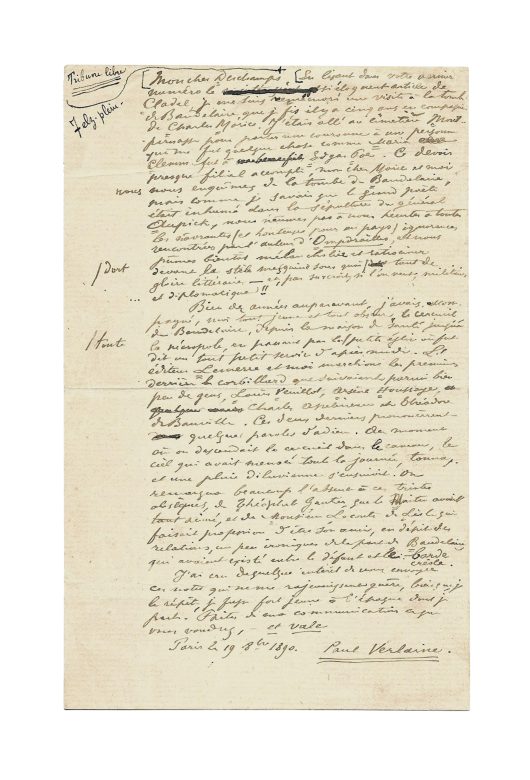 Tribune libre
7 elz. plein.
Mon cher Deschamps, En lisant dans votre dernier
numéro le si éloquent article de
Cladel, je me suis remémoré une visite à la tombe
de Baudelaire que je fis il y a cinq ans en compagnie
de Charles Morice. J'étais allé au cimetière Mont-
parnasse pour porter une couronne à une personne
qui me fut quelque chose comme Marie
Clemm fut à Edgar Poë. Ce devoir
presque filial accompli, mon cher Morice et moi
nous
nous enquîmes de la tombe de Baudelaire,
mais comme je savais que le grand poète
était inhumé dans la sépulture du général
Aupick, nous n'eûmes pas à nous heurter à toutes
les navrantes (et honteuses pour un pays) ignorances
rencontrées par l'auteur d'Ompdrailles, et nous
pûmes bientôt mélancholier et ratiociner
devant la stèle mesquine sous qui tout de
/ dort
gloire littéraire — et, par surcroît, si l'on veut, militaire
et diplomatique !
Bien des années auparavant, j'avais accom-
pagné, moi tout jeune et tout obscur, le cercueil
de Baudelaire, depuis la maison de santé jusqu'à
/ tout
la nécropole, en passant par la petite église où fut
dit un tout petit service d'après-midi. L'é-
diteur Lemerre et moi marchions les premiers
derrière le corbillard que suivaient parmi très
peu de gens, Louis Veuillot, Arsène Houssaye,
Charles Asselineau et Théodore
de Banville. Ces deux derniers prononcèrent
quelques paroles d'adieu. Au moment
où on descendait le cercueil dans le caveau, le
ciel qui avait menacé tout la journée, tonna,
et une pluie diluvienne s'ensuivit. On
remarqua beaucoup l'absence à ces tristes
obsèques, de Théophile Gautier que le Maître avait
tant aimé, et de Monsieur Leconte de Lisle qui
faisait profession d'être son ami, en dépit des
relations, un peu ironiques de la part de Baudelaire
qui avaient existé entre le défunt et le barde
créole.
J'ai cru de quelque intérêt de vous envoyer
ces notes qui ne me rajeunissent guère, bien que, je
le répète, je fusse fort jeune à l'époque dont je
parle. Faites de ma communication ce que
vous voudrez, et vale
Paris le 19 8bre 1890. Paul Verlaine.